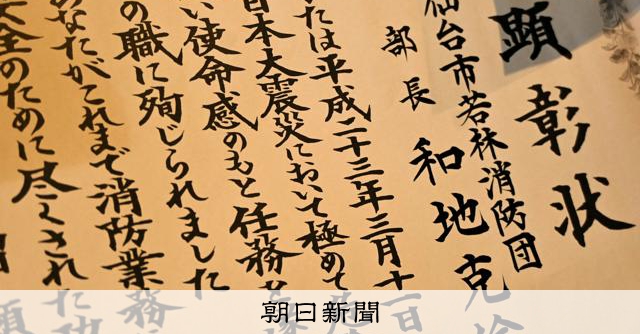 顕彰状
仙台市若林消防団
部長 和地克
たは平成二十三年三月十一日
日本大震災において極めて
い使命感のもと任務
の職に殉じられました
あなたがこれまで消防業務
安全のために尽くされた
朝日新聞